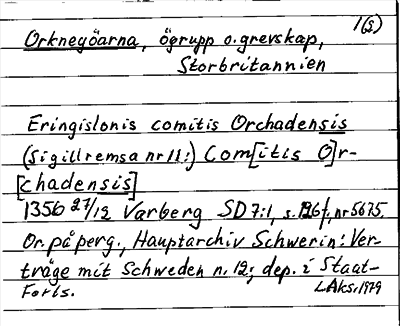 1(s)
Orkneyöarna, ögrupp o. grevskap,
Storbritannien
Eringislonis comitis Orchadensis
(sigillremsa nr 11:) Com[itis O]r-
[chadensis]
1356 27/12 Varberg SD 7:1, s. 126 f, nr 5675.
Or. på perg., Hauptarchiv Schwerin: Ver-
träge mit Schweden n. 12; dep. i Staat-
Forts.
LAks, 1979